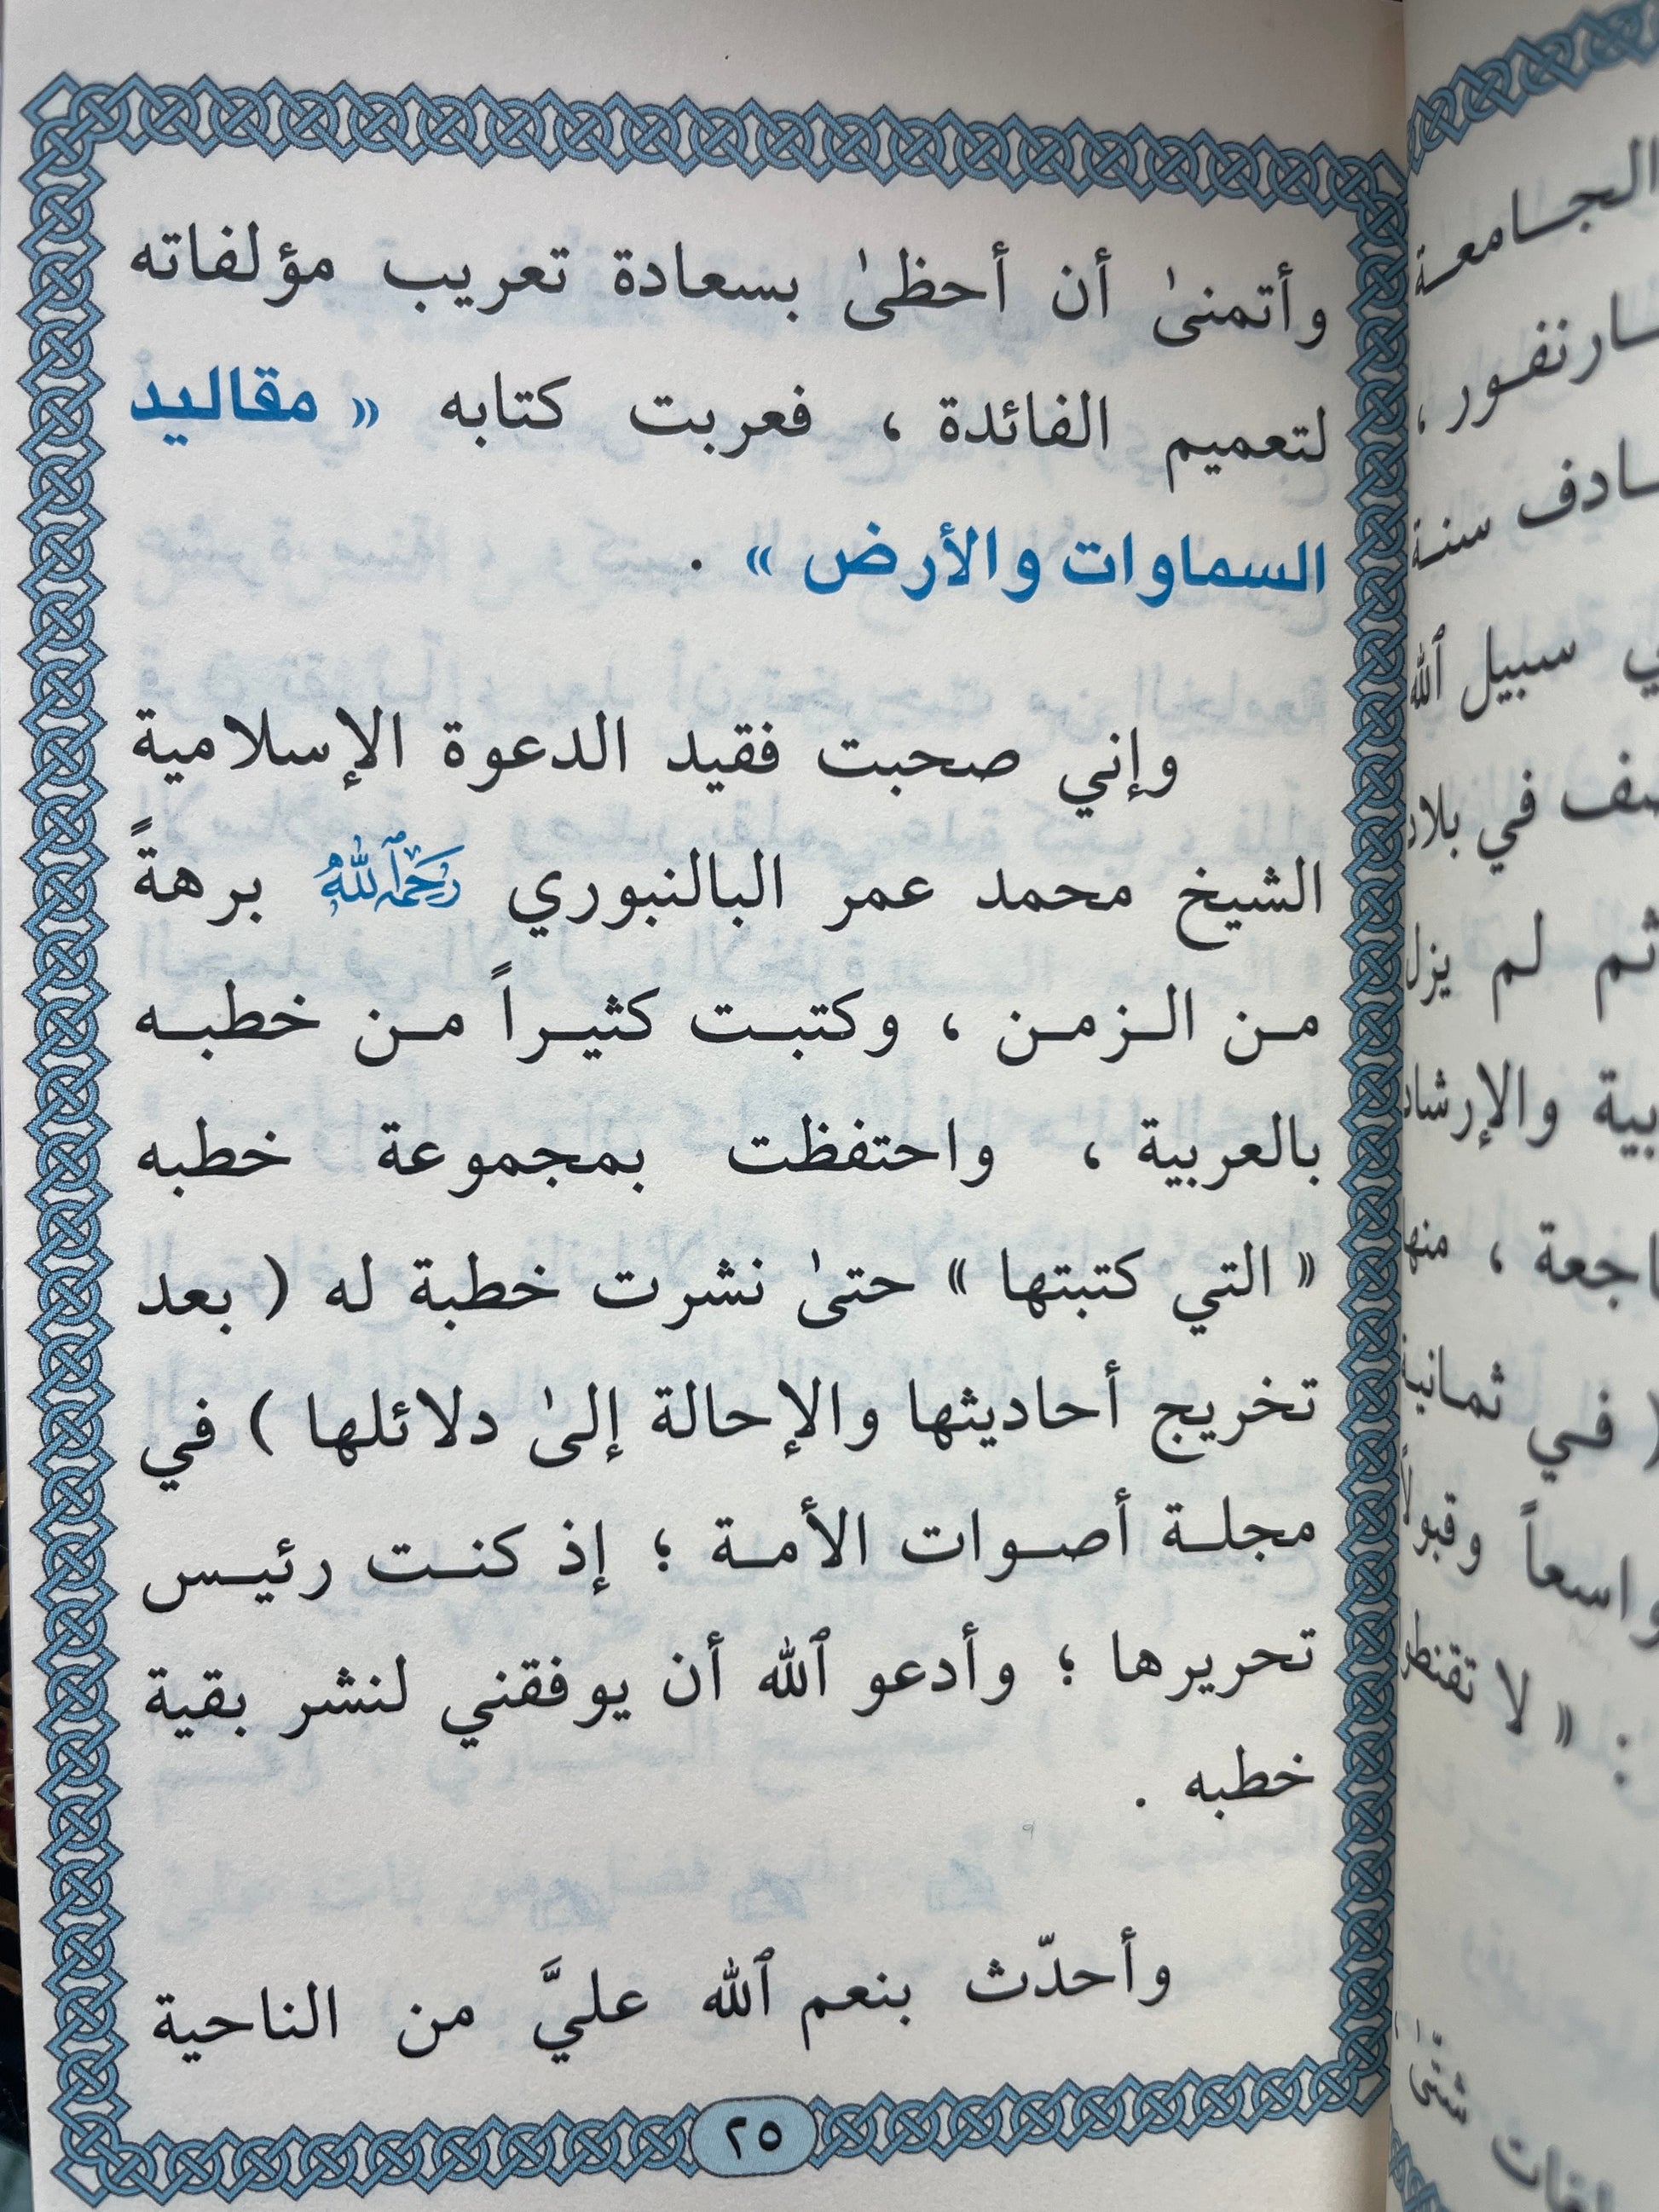 وأتمنىٰ أن أحظىٰ بسعادة تعريب مؤلفاته
لتعميم الفائدة ، فعربت كتابه « مقاليد
السماوات والأرض » .
وإني صحبت فقيد الدعوة الإسلامية
الشيخ محمد عمر البالنبوري رَحِمَهُ ٱللَّهُ برهةً
من الزمن ، وكتبت كثيراً من خطبه
بالعربية ، واحتفظت بمجموعة خطبه
« التي كتبتها » حتىٰ نشرت خطبة له ( بعد
تخريج أحاديثها والإحالة إلىٰ دلائلها ) في
مجلة أصوات الأمة ؛ إذ كنت رئيس
تحريرها ؛ وأدعو ٱلله أن يوفقني لنشر بقية
خطبه .
وأحدّث بنعم ٱلله عليَّ من الناحية
٢٥
الجامعة
سنة
سبيل ٱلله
في بلاد
ثم لم يزل
والإرشاد
، منها
( في ثمانية
واسعاً وقبولاً
« لا تقنطوا
شتّىٰ